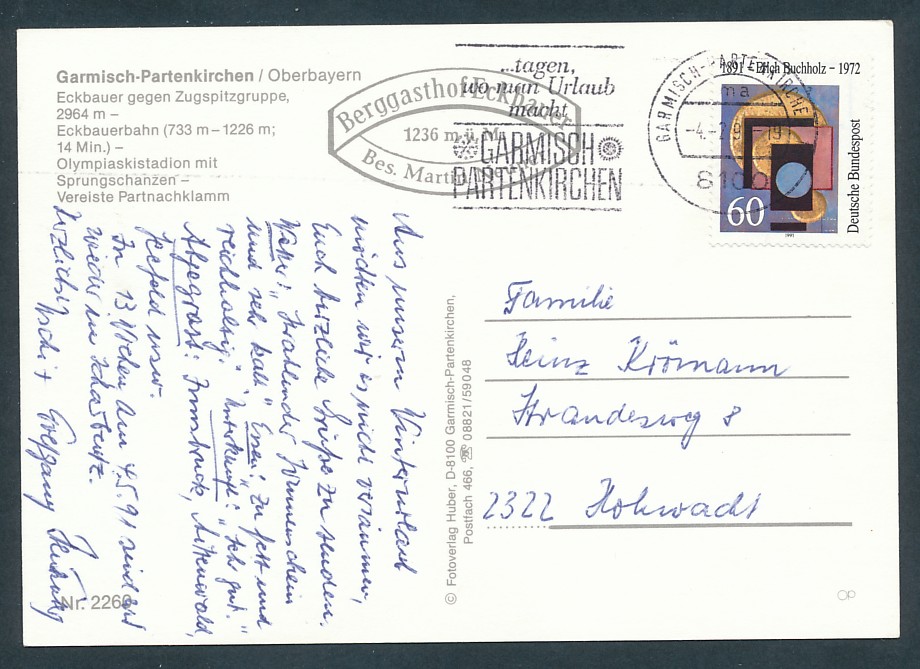 Garmisch-Partenkirchen / Oberbayern
Eckbauer gegen Zugspitzgruppe,
2964 m –
Eckbauerbahn (733 m – 1226 m;
14 Min.) –
Olympiaskistadion mit
Sprungschanzen –
Vereiste Partnachklamm
Berggasthof Eckbauer
1236 m.ü.M.
Bes. Martin
...tagen,
wo man Urlaub
macht
GARMISCH
PARTENKIRCHEN
GARMISCH-PARTENKIRCHE
ma
8100
1891 – Erich Buchholz – 1972
Deutsche Bundespost
60
1991
Aus unserem Winterurlaub
möchten wir es nicht versäumen,
Euch herzliche Grüße zu senden.
Strahlender Sonnenschein
und sehr kalt. Essen: "Zu fett und
reichhaltig". Unterkunft: "Sehr gut."
Abgegrast: Innsbruck, Mittenwald,
Seefeld usw.
In 13 Wochen am 4.5.91 sind wir
wieder in
Herzlichst + Wolfgang
Familie
Heinz Krömann
Strandesweg 8
2322 Hohwacht
© Fotoverlag Huber, D-8100 Garmisch-Partenkirchen,
Postfach 466, ☏ 08821/59048
Nr. 2260